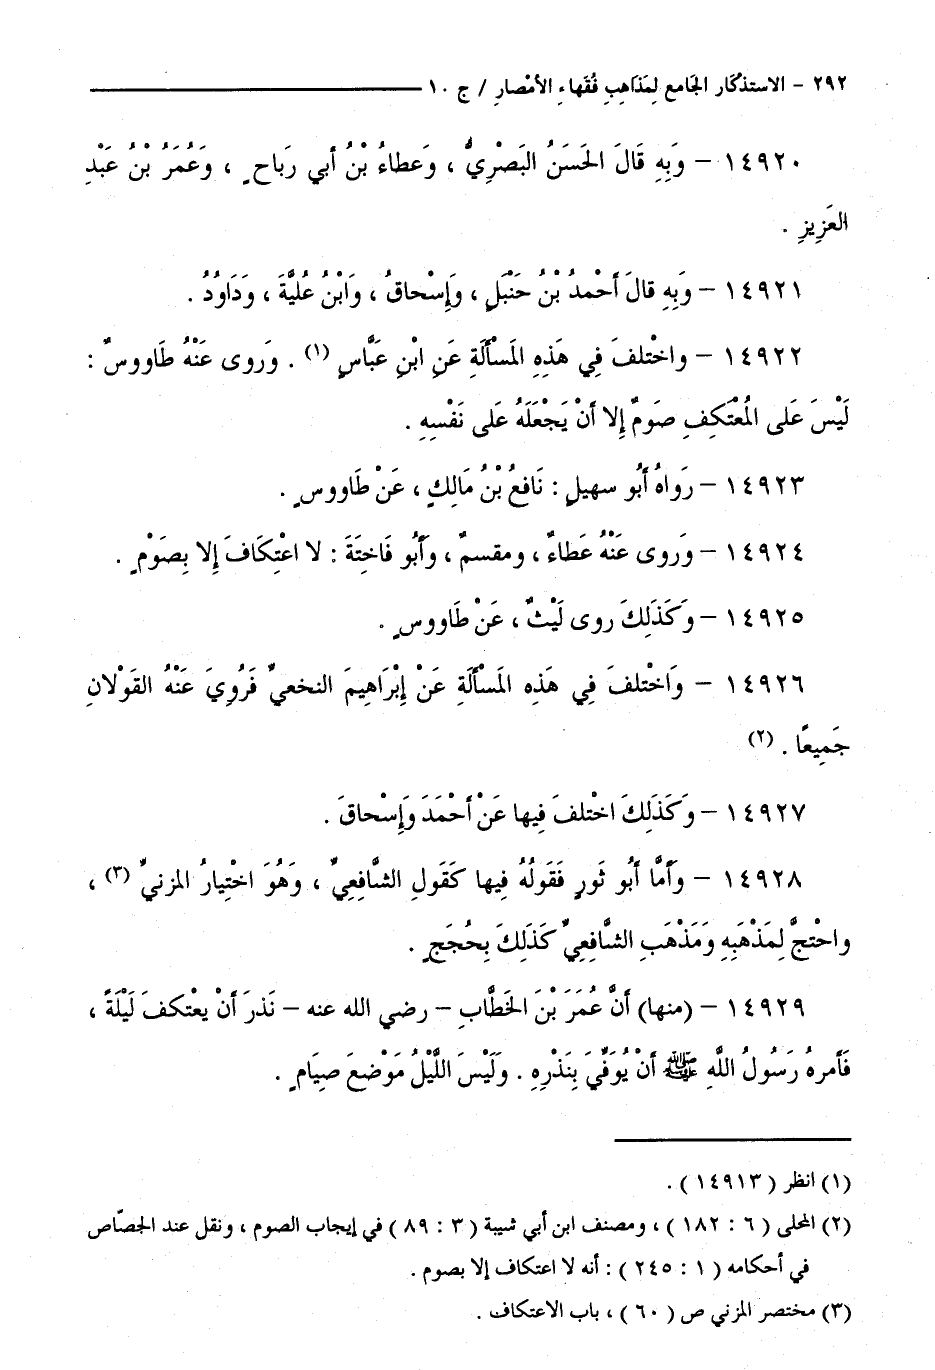 ٢٩٢ – الاستذكار الجامع لمَذاهِبِ فُقَهاءِ الأمْصارِ / ج ١٠
١٤٩٢٠ – وَبِهِ قَالَ الحَسَنُ البَصْرِيُّ ، وَعطاءُ بْنُ أبي رَباحٍ ، وَعُمَرُ بْنُ عَبْدِ
العَزِيزِ .
١٤٩٢١ – وَبِهِ قالَ أَحْمدُ بْنُ حَنْبَلٍ ، وَإِسْحاقُ ، وَابْنُ عُلَيَّةَ ، وَدَاوُدُ .
١٤٩٢٢ – واخْتلفَ فِي هَذِهِ المَسْأَلَةِ عَنِ ابْنِ عَبَّاسٍ (١) . وَروى عَنْهُ طَاووسٌ :
لَيْسَ عَلى المُعْتَكِفِ صَومٌ إِلا أَنْ يَجْعَلَهُ عَلى نَفْسِهِ .
١٤٩٢٣ – رَواهُ أَبُو سهيلٍ : نَافعُ بْنُ مَالِكٍ ، عَنْ طَاووسٍ .
١٤٩٢٤ – وَروى عَنْهُ عَطاءٌ ، ومقسمٌ ، وَأَبُو فَاخِتَةَ : لا اعْتِكَافَ إِلا بِصَوْمٍ .
١٤٩٢٥ – وَكَذَلِكَ روى لَيْثٌ ، عَنْ طَاووسٍ .
١٤٩٢٦ – وَاخْتلفَ فِي هَذِهِ المَسْأَلَةِ عَنْ إِبْرَاهِيمَ النخعيِّ فَرُوِيَ عَنْهُ القَوْلانِ
جَمِيعًا . (٢)
١٤٩٢٧ – وَكَذَلِكَ اخْتلفَ فِيها عَنْ أَحْمَدَ وَإِسْحاقَ .
١٤٩٢٨ – وَأَمَّا أَبُو ثَورٍ فَقَولُهُ فِيها كَقَولِ الشَّافِعِيِّ ، وَهُوَ اخْتِيارُ المزنيِّ (٣) ،
واحْتجَّ لِمَذْهَبِهِ وَمَذْهَبِ الشَّافِعِيِّ كَذَلِكَ بِحُجَجٍ .
١٤٩٢٩ – (منها) أَنَّ عُمَرَ بْنَ الخَطَّابِ – رضي الله عنه – نَذرَ أَنْ يعْتكفَ لَيْلَةً ،
فَأَمرهُ رَسُولُ اللَّهِ ﷺ أَنْ يُوَفِّيَ بِنَذْرِهِ . وَلَيْسَ اللَّيْلُ مَوْضِعَ صِيَامٍ .
(١) انظر ( ١٤٩١٣ ) .
(٢) المحلى ( ٦ : ١٨٢ ) ، ومصنف ابن أبي شيبة ( ٣ : ٨٩ ) في إيجاب الصوم ، ونقل عند الجصّاص
في أحكامه ( ١ : ٢٤٥ ) : أنه لا اعتكاف إلا بصوم .
(٣) مختصر المزني ص ( ٦٠ ) ، باب الاعتكاف .